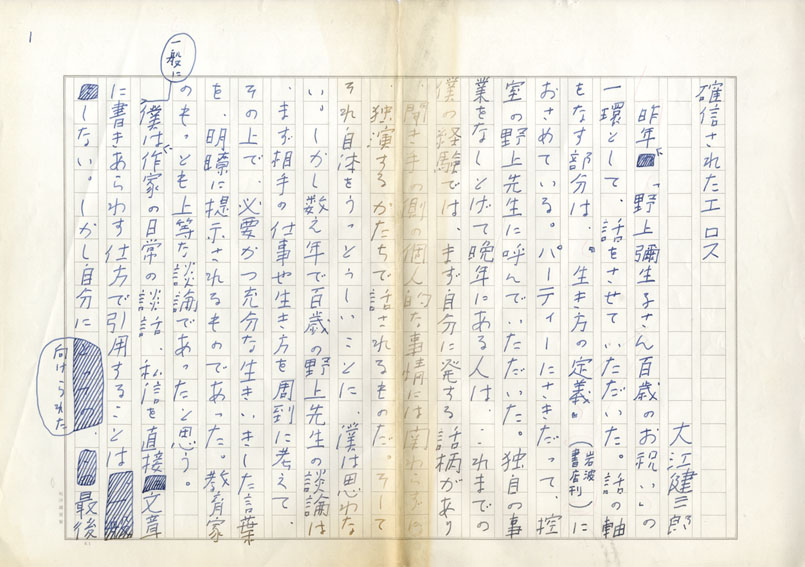 1
確信されたエロス
大江健三郎
昨年、「野上彌生子さん百歳のお祝い」の
一環として、話をさせていただいた。話の軸
をなす部分は、『生き方の定義』(岩波書店刊)に
おさめている。パーティーにさきだって、控
室の野上先生に呼んでいただいた。独自の事
業をなしとげて晩年にある人は、これまでの
僕の経験では、まず自分に発する話柄があり
、聞き手の側の個人的な事情には関わらずに
、独演するかたちで話されるものだ。そして
それ自体をうっとうしいことに、僕は思わな
い。しかし数え年で百歳の野上先生の談論は
、まず相手の仕事や生き方を周到に考えて、
その上で、必要かつ充分な生きいきした言葉
を、明瞭に提示されるものであった。教育家
のもっとも上等な談論であったと思う。
一般に僕は作家の日常の談話、私信を直接文章
に書きあらわす仕方で引用することは
しない。しかし自分に向けられた、最後